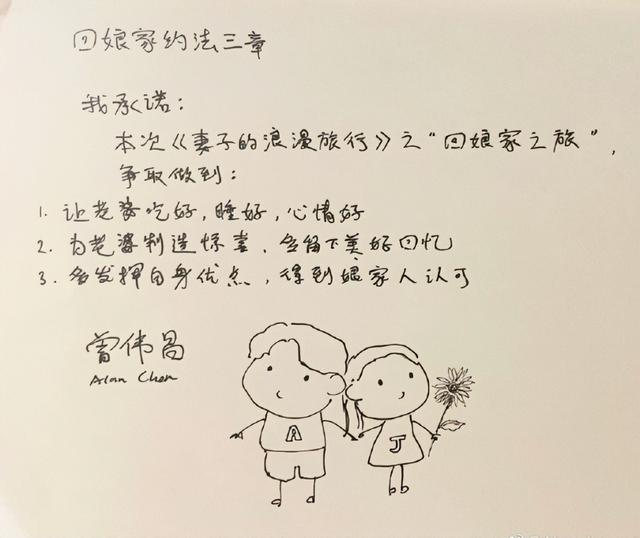 回娘家约法三章
我承诺:
本次《妻子的浪漫旅行》之"回娘家之旅",
争取做到:
1. 让老婆吃好,睡好,心情好
2. 为老婆制造惊喜、多留下美好回忆
3. 多发挥自身优点,得到娘家人认可
曾伟昌
Alan Chen
A
J